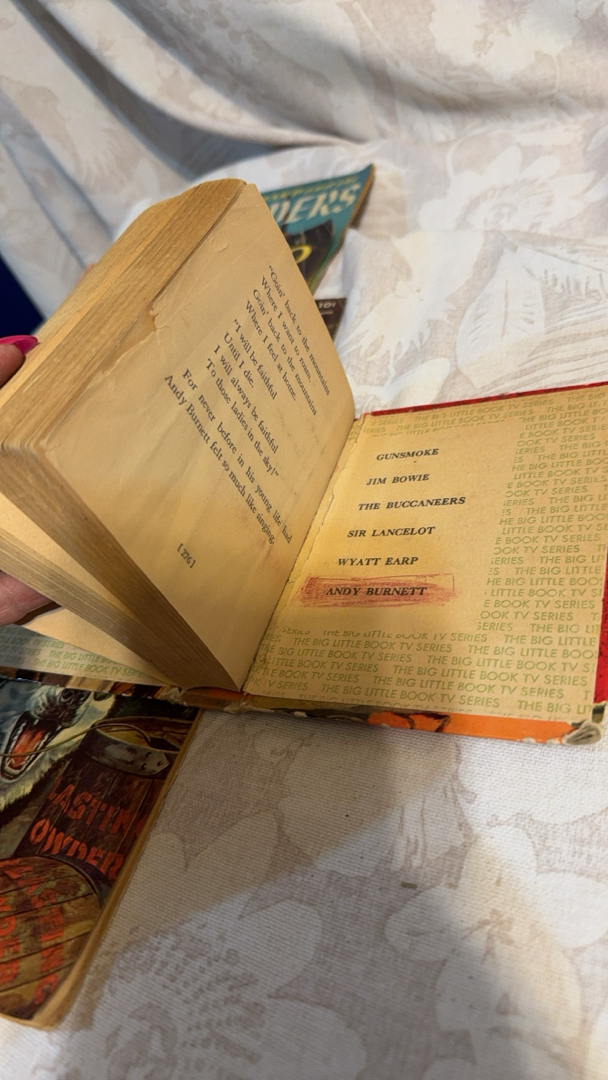 DERS
10¢
"Goin' back to the mountains
Where I want to roam.
Goin' back to the mountains
Where I feel at home.
"I will be faithful
Until I die.
I will always be faithful
To those ladies in the sky!"
For never before in his young life had
Andy Burnett felt so much like singing.
[276]
GUNSMOKE
JIM BOWIE
THE BUCCANEERS
SIR LANCELOT
WYATT EARP
ANDY BURNETT
THE BIG LITTLE BOOK TV SERIES
THE BIG LITTLE BOOK TV SERIES
THE BIG LITTLE BOOK TV SERIES
THE BIG LITTLE BOOK TV SERIES
THE BIG LITTLE BOOK TV SERIES
ASTIN
OWDER